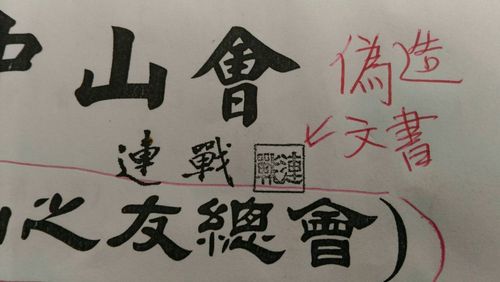 山會
連戰
連戰
偽造
文書
之友總會)